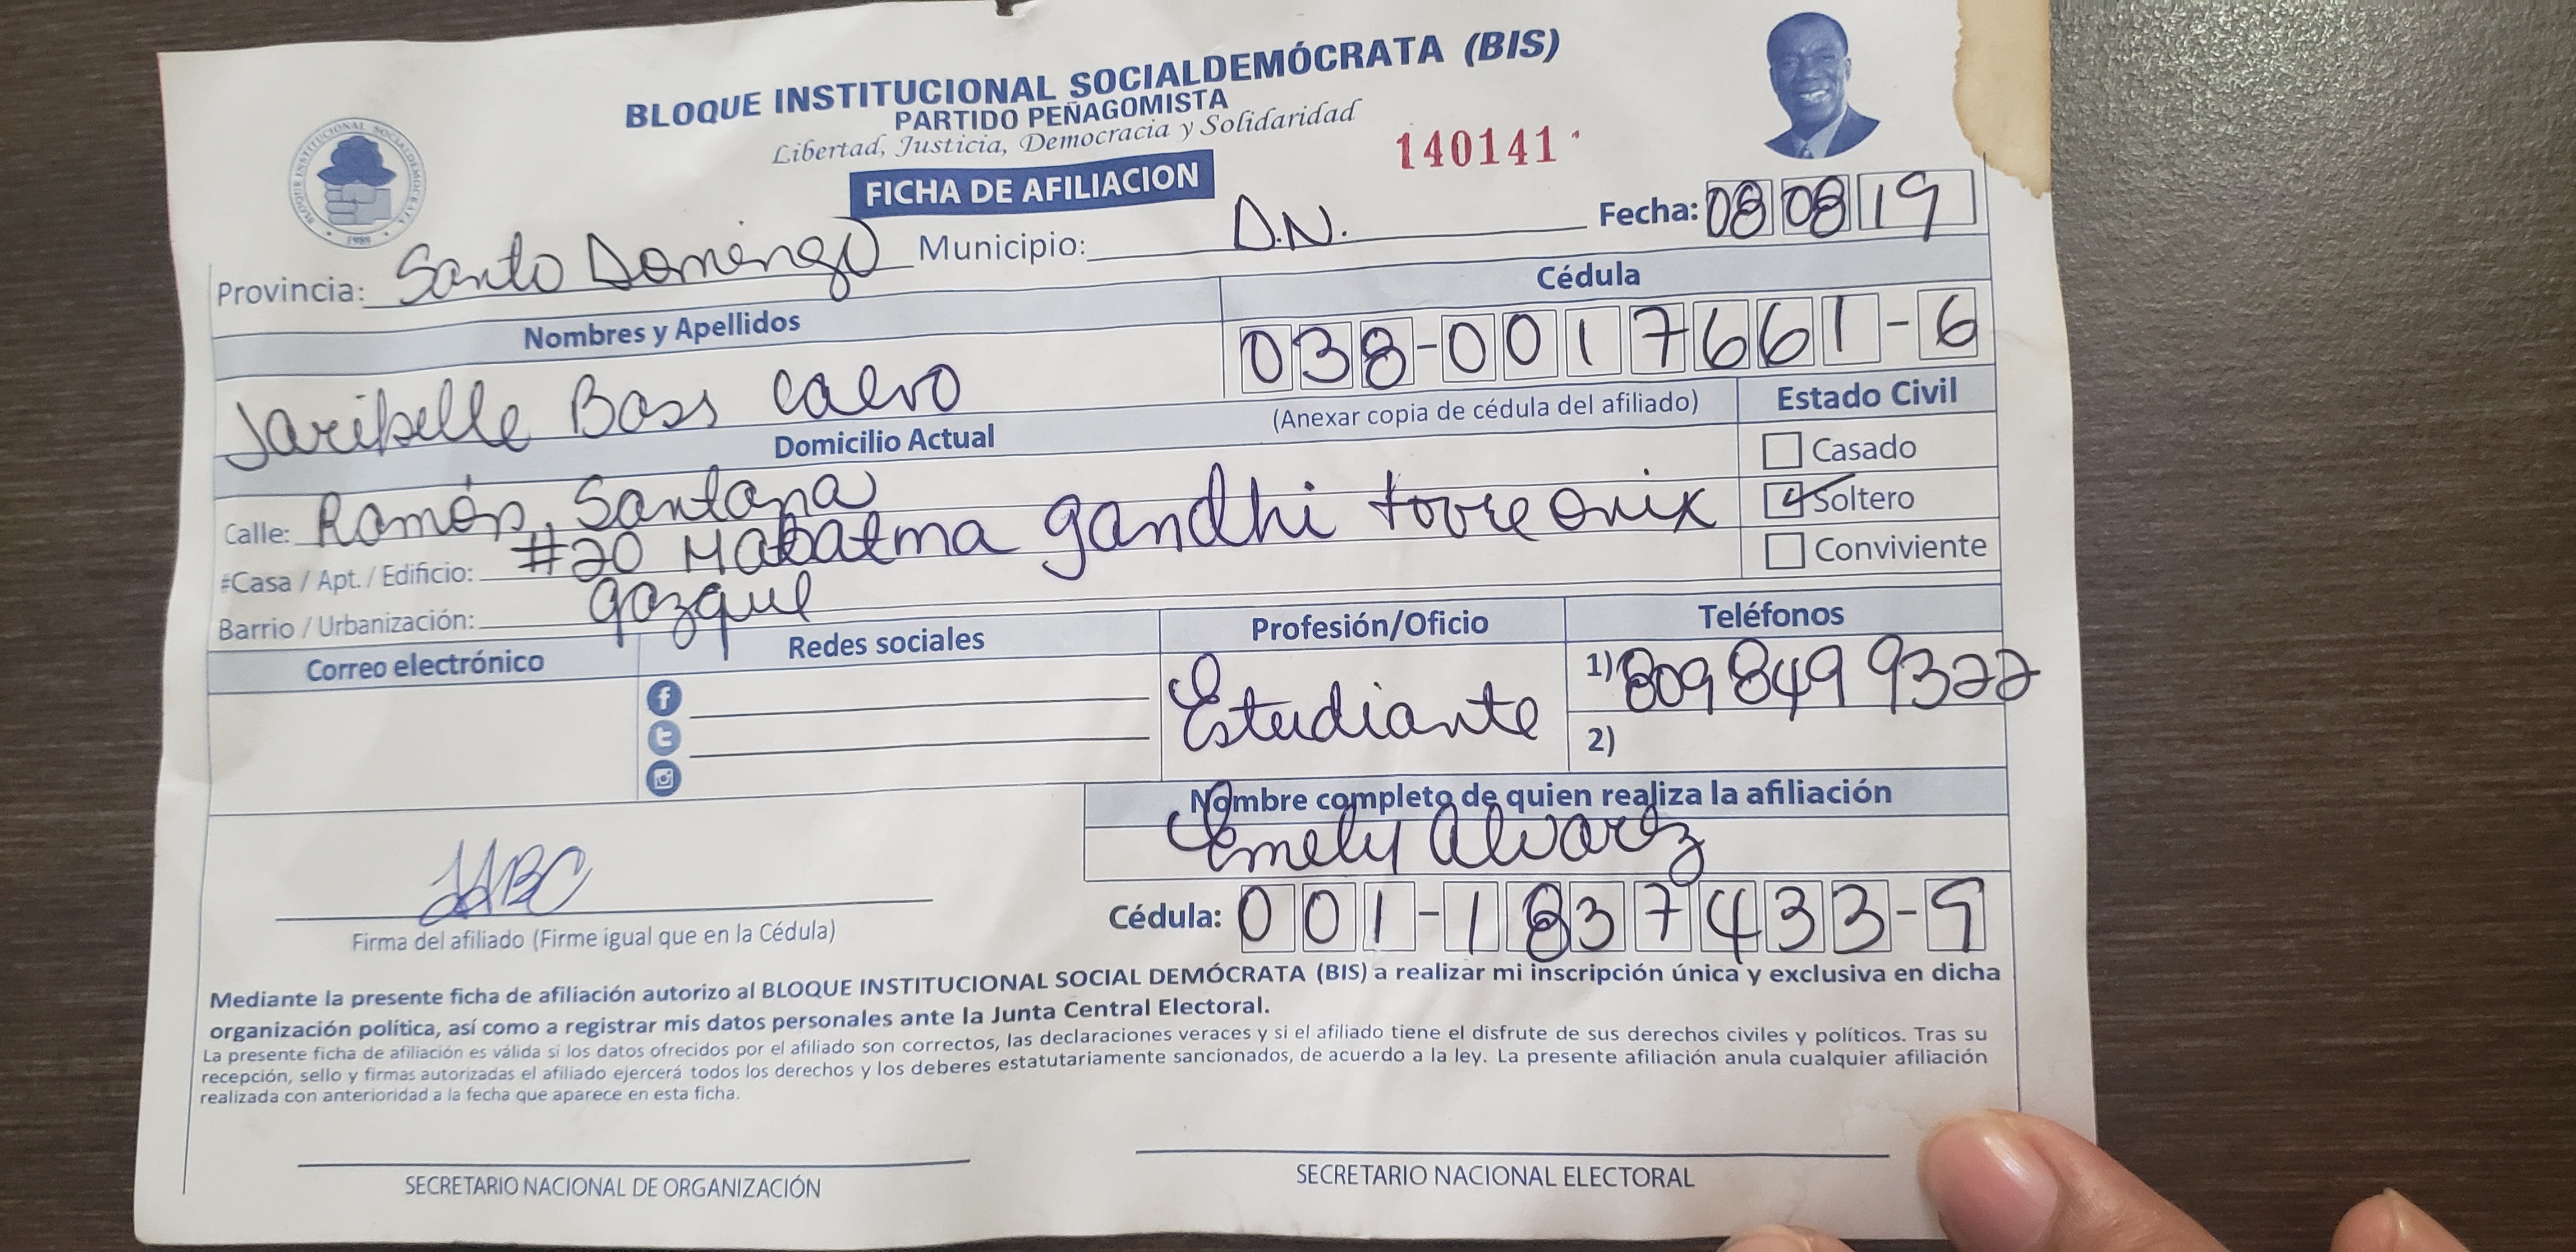 BLOQUE INSTITUCIONAL SOCIALDEMÓCRATA (BIS)
PARTIDO PEÑAGOMISTA
Libertad, Justicia, Democracia y Solidaridad
140141
FICHA DE AFILIACION
BLOQUE INSTITUCIONAL SOCIALDEMOCRATA
1989
Fecha: 08 08 19
Provincia: Santo Domingo Municipio: D.N.
Nombres y Apellidos
Cédula
Jaribelle Bass Calvo
038-0017661-6
(Anexar copia de cédula del afiliado)
Domicilio Actual
Estado Civil
Casado
Soltero
Conviviente
Calle: Ramón Santana
#Casa / Apt. / Edificio: #20 Mahatma gandhi torre onix
Barrio / Urbanización: gazque
Correo electrónico
Redes sociales
Profesión/Oficio
Teléfonos
Estudiante
1) 809 849 9322
2)
Nombre completo de quien realiza la afiliación
Emely Alvarez
Cédula: 001-1837433-9
Firma del afiliado (Firme igual que en la Cédula)
Mediante la presente ficha de afiliación autorizo al BLOQUE INSTITUCIONAL SOCIAL DEMÓCRATA (BIS) a realizar mi inscripción única y exclusiva en dicha
organización política, así como a registrar mis datos personales ante la Junta Central Electoral.
La presente ficha de afiliación es válida si los datos ofrecidos por el afiliado son correctos, las declaraciones veraces y si el afiliado tiene el disfrute de sus derechos civiles y políticos. Tras su
recepción, sello y firmas autorizadas el afiliado ejercerá todos los derechos y los deberes estatutariamente sancionados, de acuerdo a la ley. La presente afiliación anula cualquier afiliación
realizada con anterioridad a la fecha que aparece en esta ficha.
SECRETARIO NACIONAL DE ORGANIZACIÓN
SECRETARIO NACIONAL ELECTORAL